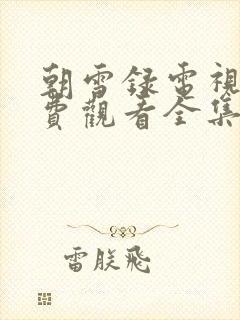 朝雪録電視
費觀看全集
雷朕飛